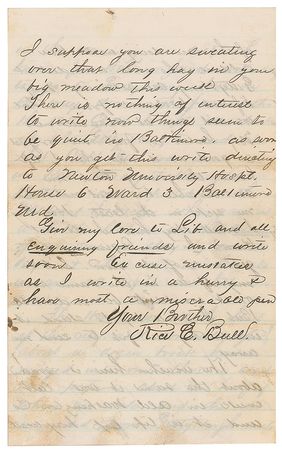 I suppose you are sweating
over that long hay in your
big meadow this week
There is nothing of interest
to write now things seem to
be quiet in Baltimore. as soon
as you get this write directing
to Newton University Hospt.
House 6 Ward 3 Baltimore
Md.
Give my love to Lib and all
enquiring friends and write
soon Excuse mistakes
as I write in a hurry &
have most a miserable pen
Your Brother
Rice C. Bull.